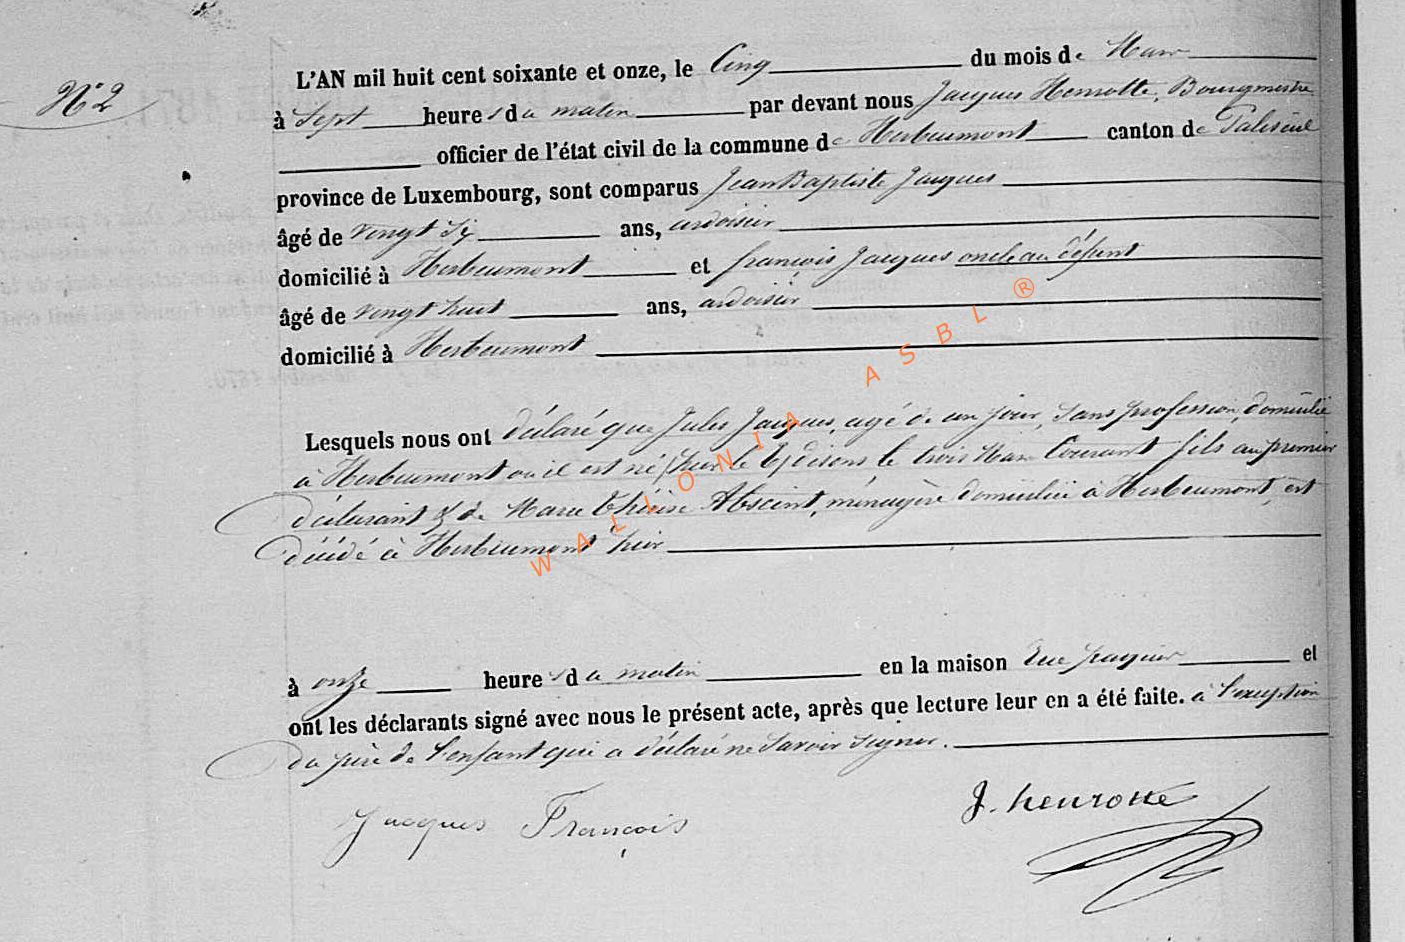 N° 2
L'AN mil huit cent soixante et onze, le Cinq du mois de Mars
à Sept heures du matin par devant nous Jacques Henrotte, Bourgmestre
officier de l'état civil de la commune de Herbeumont canton de Paliseul
province de Luxembourg, sont comparus Jean Baptiste Jacques
âgé de vingt six ans, ardoisier
domicilié à Herbeumont et françois Jacques oncle au défunt
âgé de vingt huit ans, ardoisier
domicilié à Herbeumont
Lesquels nous ont déclaré que Jules Jacques, agé de un jour, Sans profession, domicilié
à Herbeumont ou il est né le trois Mars Courant fils au premier
déclarant & de Marie Thérèse Abscint, ménagère domiciliée à Herbeumont, est
décédé à Herbeumont hier
à onze heures du matin en la maison et
ont les déclarants signé avec nous le présent acte, après que lecture leur en a été faite. à l'exception
du père de l'enfant qui a déclaré ne Savoir Signer.
Jacques François
J. henrotte
WALLONIA ASBL ®